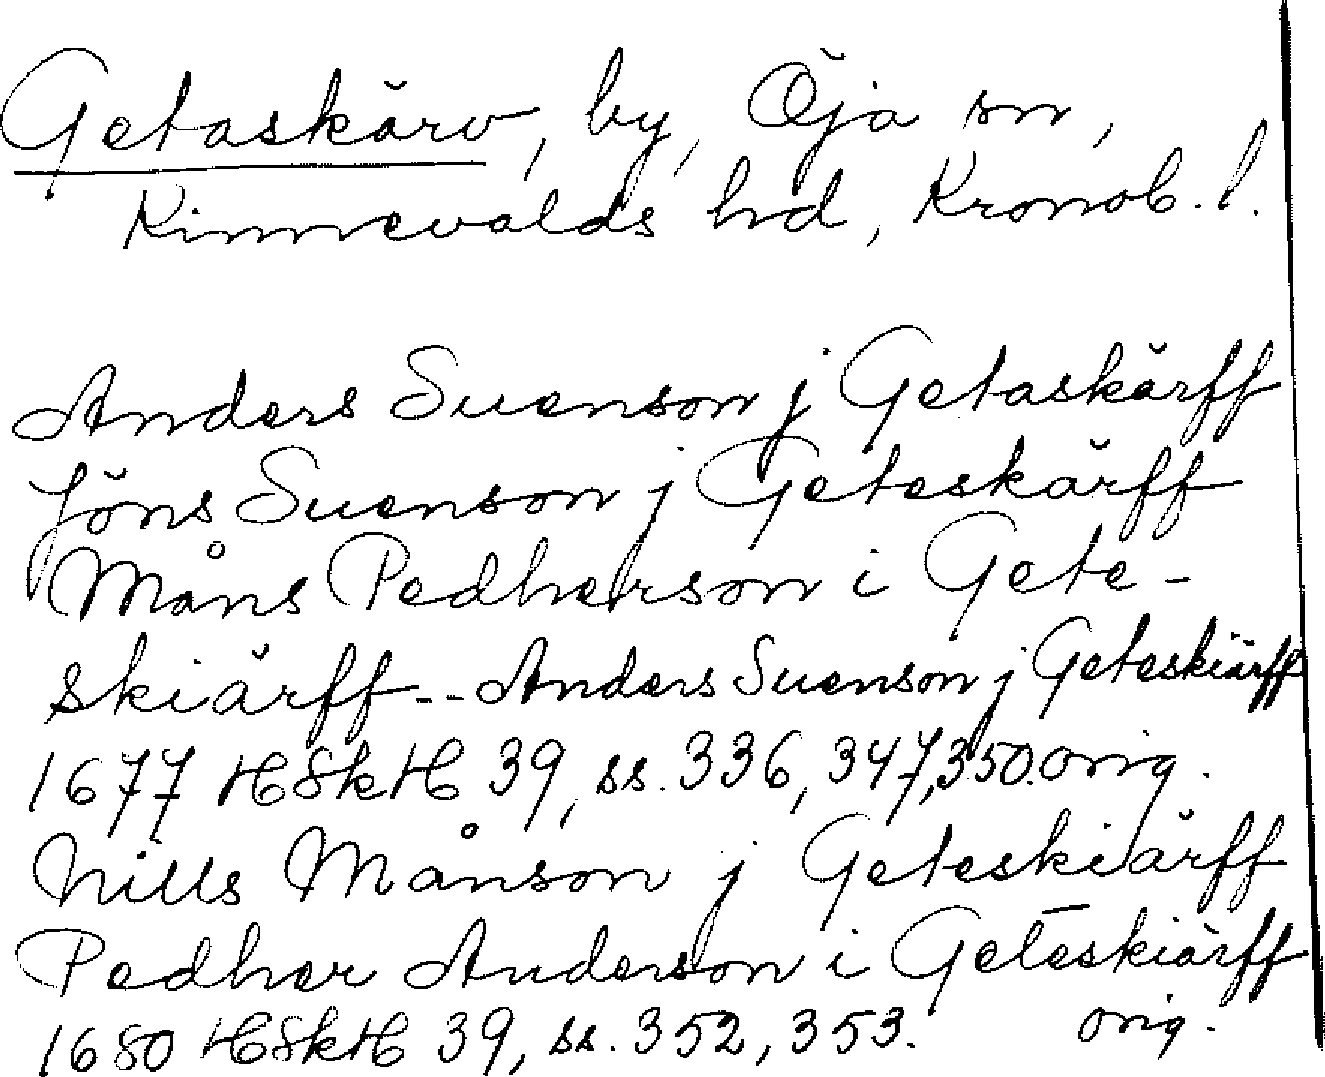 Getaskärv, by, Öja sn,
Kinnevalds hd, Kronob. l.
Anders Suenson j Getaskärff
Jöns Suenson j Geteskärff
Måns Pedherson i Gete-
skiärff -- Anders Suenson j Geteskiärff
1677 HSkH 39, ss. 336, 347, 350. orig.
Nills Månson j Geteskiärff
Pedher Anderson i Geteskiärff
1680 HSkH 39, ss. 352, 353. orig.